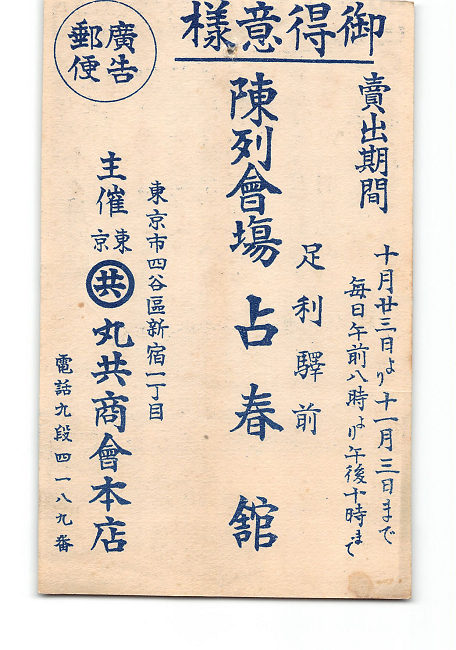 御得意樣
廣告
郵便
賣出期間
十月廿三日より十一月三日まで
每日午前八時より午後十時まで
足利驛前
陳列會塲 占春舘
東京市四谷區新宿一丁目
主催 東京 共 丸共商會本店
電話九段四一八九番